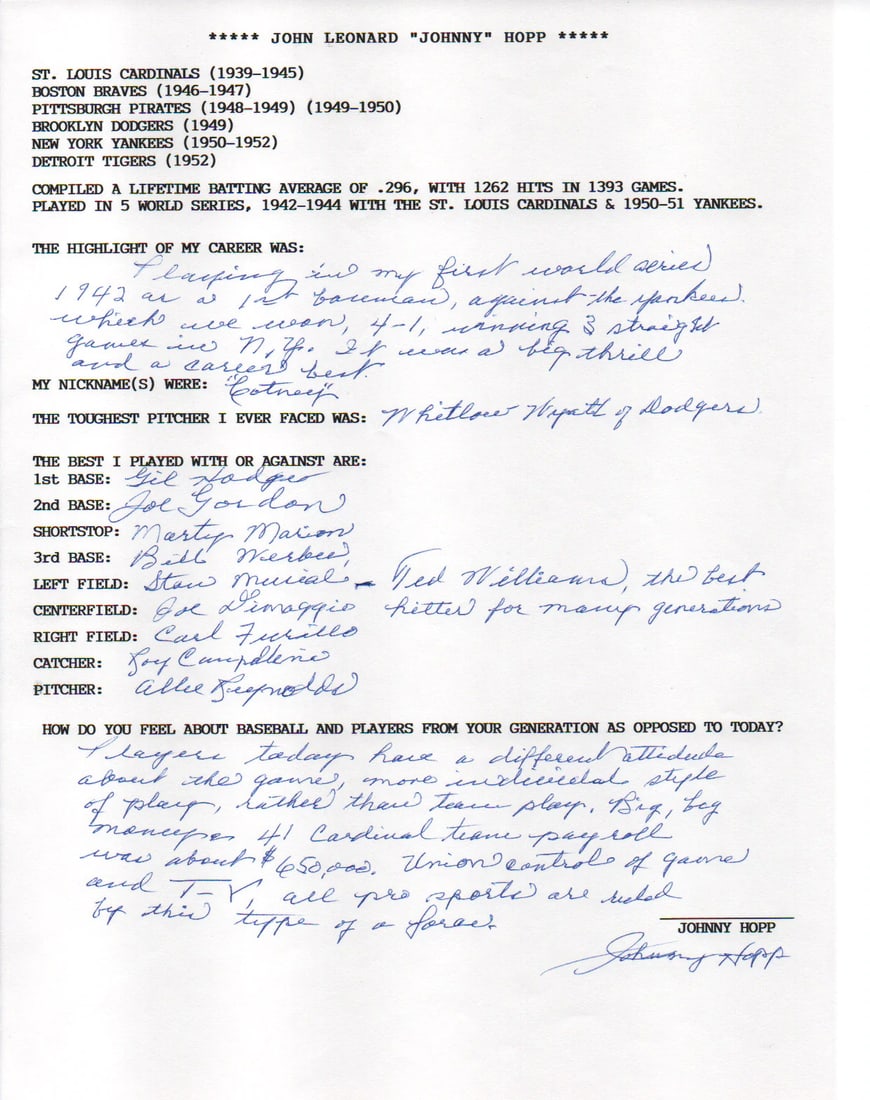 ***** JOHN LEONARD "JOHNNY" HOPP *****
ST. LOUIS CARDINALS (1939-1945)
BOSTON BRAVES (1946-1947)
PITTSBURGH PIRATES (1948-1949) (1949-1950)
BROOKLYN DODGERS (1949)
NEW YORK YANKEES (1950-1952)
DETROIT TIGERS (1952)
COMPILED A LIFETIME BATTING AVERAGE OF .296, WITH 1262 HITS IN 1393 GAMES.
PLAYED IN 5 WORLD SERIES, 1942-1944 WITH THE ST. LOUIS CARDINALS & 1950-51 YANKEES.
THE HIGHLIGHT OF MY CAREER WAS:
Playing in my first world series
1942 as a 1st baseman, against the Yankees.
which we won, 4-1, winning 3 straight
games in N.Y. It was a big thrill
and a career best.
MY NICKNAME(S) WERE: "Cotney"
THE TOUGHEST PITCHER I EVER FACED WAS: Whitlow Wyatt of Dodgers.
THE BEST I PLAYED WITH OR AGAINST ARE:
1st BASE: Gil Hodges
2nd BASE: Joe Gordon
SHORTSTOP: Marty Marion
3rd BASE: Bill Werber,
LEFT FIELD: Stan Musial - Ted Williams, the best
CENTERFIELD: Joe Dimaggio hitter for many generations
RIGHT FIELD: Carl Furillo
CATCHER: Roy
PITCHER: Allie Reynolds
HOW DO YOU FEEL ABOUT BASEBALL AND PLAYERS FROM YOUR GENERATION AS OPPOSED TO TODAY?
Players today have a different attidude
about the game, more style
of play, rather than team play. Big, big
41 Cardinal team payroll
was about $650,000. Union control of game
and T-V, all pro sports are ruled
by this type of a force.
JOHNNY HOPP
Johnny Hopp